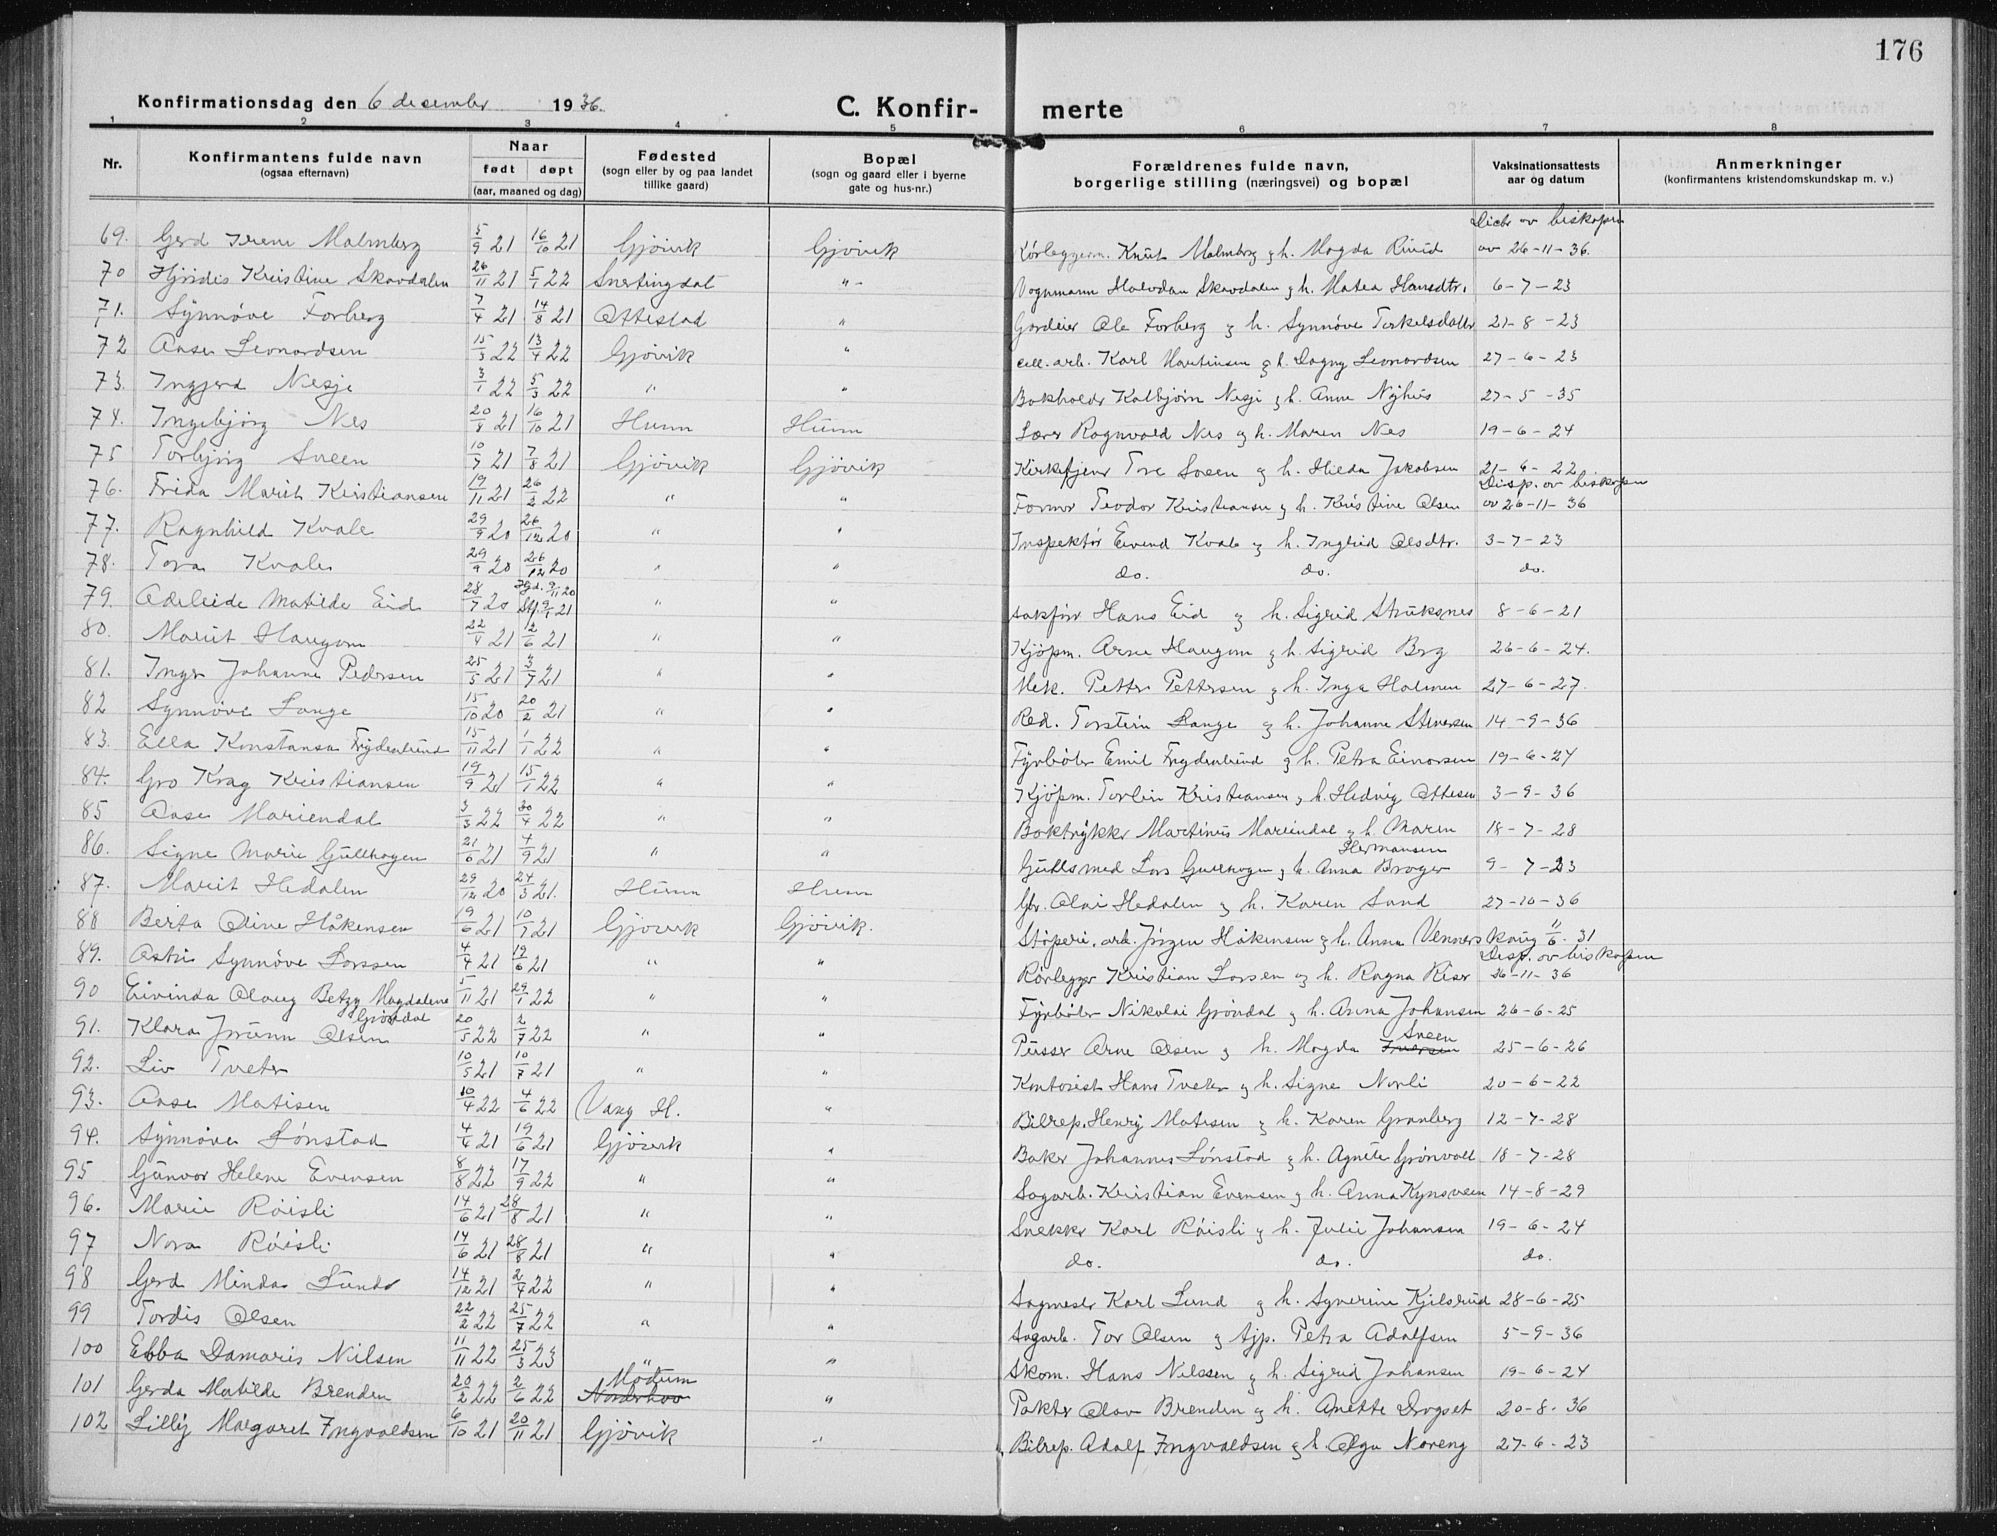 176
Konfirmationsdag den 6 desember 1936.
C. Konfir- merte
1 2 3 4 5 6 7 8
Nr. Konfirmantens fulde navn (ogsaa efternavn) Naar født døpt (aar, maaned og dag) Fødested (sogn eller by og paa landet tillike gaard) Bopæl (sogn og gaard eller i byerne gate og hus-nr.) Forældrenes fulde navn, borgerlige stilling (næringsvei) og bopæl Vaksinationsattests aar og datum Anmerkninger (konfirmantens kristendomskundskap m. v.)
av biskopen
69. Gerd Irene Malmberg 5/9 21 16/10 21 Gjøvik Gjøvik Rørleggerm. Knut Malmberg & h. Magda Ruud av 26-11-36.
70 Hjørdis Kristine Skavdalen 26/11 21 5/1 22 Snertingdal " - Vognmann Halvdan Skavdalen & h. Matea Hansdtr. 6-7-23
71. Synnøve Forberg 7/4 21 14/8 21 Ottestad " Gardeier Ole Forberg & h. Synnøve Torkelsdatter 21-8-23
72 Aase Leonardsen 15/3 22 13/4 22 Gjøvik " cell. arb. Karl Martinsen & h. Dagny Leonardsen 27-6-23
73. Ingjerd Nesje 3/1 22 5/3 22 " " Bokholder Kolbjørn Nesje & h. Anne Nyhus 27-5-35
74. Ingebjørg Nes 20/8 21 16/10 21 Hunn Hunn Lærer Ragnvald Nes & h. Maren Nes 19-6-24
75 Torbjørg Sveen 10/7 21 7/8 21 Gjøvik Gjøvik Kirketjener Tore Sveen & h. Hilda Jakobsen 21-6-22.
Disp. av biskopen
76. Frida Marit Kristiansen 19/11 21 26/2 22 " " Former Teodor Kristiansen & h. Kristine Olsen av 26-11-36
77. Ragnhild Kvale 29/9 20 26/12 20 " " Inspektør Eivind Kvale & h. Ingrid Olsdtr. 3-7-23
78. Tora Kvale 29/9 20 26/12 20 " " do. do. do.
79. Adeleide Matilde Eid 28/7 20 Hjd. 9/11 20 Stf. 9/1 21 " " sakfører Hans Eid & h. Sigrid Struksnes 8-6-21
80. Marit Haugom 22/4 21 2/6 21 " " Kjøpm. Arne Haugom & h. Sigrid Berg 26-6-24.
81. Inger Johanne Pedersen 25/5 21 3/7 21 " " Mek. Petter Pettersen & h. Inga Holmen 27-6-27.
82 Synnøve Lange 15/10 20 20/2 21 " " Red. Torstein Lange & h. Johanne Steversen 14-9-36
83. Ella Konstansa Frydenlund 15/11 21 1/1 22 " " Fyrbøter Emil Frydenlund & h. Petra Einarsen 19-6-27
84. Gro Krag Kristiansen 19/9 21 15/1 22 " " Kjøpm. Torleiv Kristiansen & h. Hedvig Ottesen 3-9-36
85 Aase Mariendal 3/3 22 30/4 22 " " Boktrykker Martinus Mariendal & h. Maren 18-7-28
Hermansen
86. Signe Marie Gullhogen 21/6 21 4/9 21 " " Gullsmed Lars Gullhogen & h. Anna Brager 9-7-23
87. Marit Hedalen 29/12 20 24/3 21. Hunn Hunn Gbr. Olai Hedalen & h. Karen Sand 27-10-36
88 Berta Oline Håkensen 19/6 21 10/7 21 Gjøvik Gjøvik. Støperi.arb. Jørgen Håkensen & h. Anna Vennerskaug 11/6. 31
Disp. av biskopen
89. Astri Synnøve Larssen 4/4 21 19/6 21 " " Rørlegger Kristian Larsen & h. Ragna Riser 26-11-36
90 Eivinda Olaug Betzy Magdalene 5/11 21 29/1 22 " " Fyrbøter Nikolai Grøndal & h. Anna Johansen 26-6-25
Grøndal
91. Klara Jorunn Olsen 20/5 22 2/7 22 " " Pusser Arne Olsen & h. Magda Iversen Sveen 25-6-26
92. Liv Tveter 10/5 21 10/7 21 " " Kontorist Hans Tveter & h. Signe Norli 20-6-22
93. Aase Matisen 10/4 22 4/6 22 Vang H. " Bilrep. Henry Matisen & h. Karen Granberg 12-7-28
94. Synnøve Lønstad 4/4 21 19/6 21 Gjøvik " Baker Johannes Lønstad & h. Agnete Grønvoll 18-7-28
95 Gunvor Helene Evensen 8/8 22 17/9 22 " " Sagarb. Kristian Evensen & h. Anna Kynsveen 14-8-29
96. Marie Røisli 14/6 21 28/8 21 " " Snekker Karl Røisli & h. Julie Johansen 19-6-24
97 Nora Røisli 14/6 21 28/8 21 " " do. do. do.
98 Gerd Minda Lund 14/12 21 2/4 22 " " Sagmester Karl Lund & h. Syverine Kjelsrud 28-6-25
99 Tordis Olsen 22/2 22 25/7 22 " " Sagarb. Tor Olsen & tjp. Petra Adolfsen 5-9-36
100 Ebba Damaris Nilsen 11/11 22 25/3 23 " " Skom. Hans Nilssen & h. Sigrid Johansen 19-6-24
101 Gerda Matilde Brenden 20/2 22 2/6 22 Modum Norderhov " Pakker Olav Brenden & h. Anette Drogset 20-8-36
102 Lilly Margaret Ingvaldsen 6/10 21 20/11 21 Gjøvik " Bilrep. Adolf Ingvaldsen & h. Olga Noreng 27-6-23